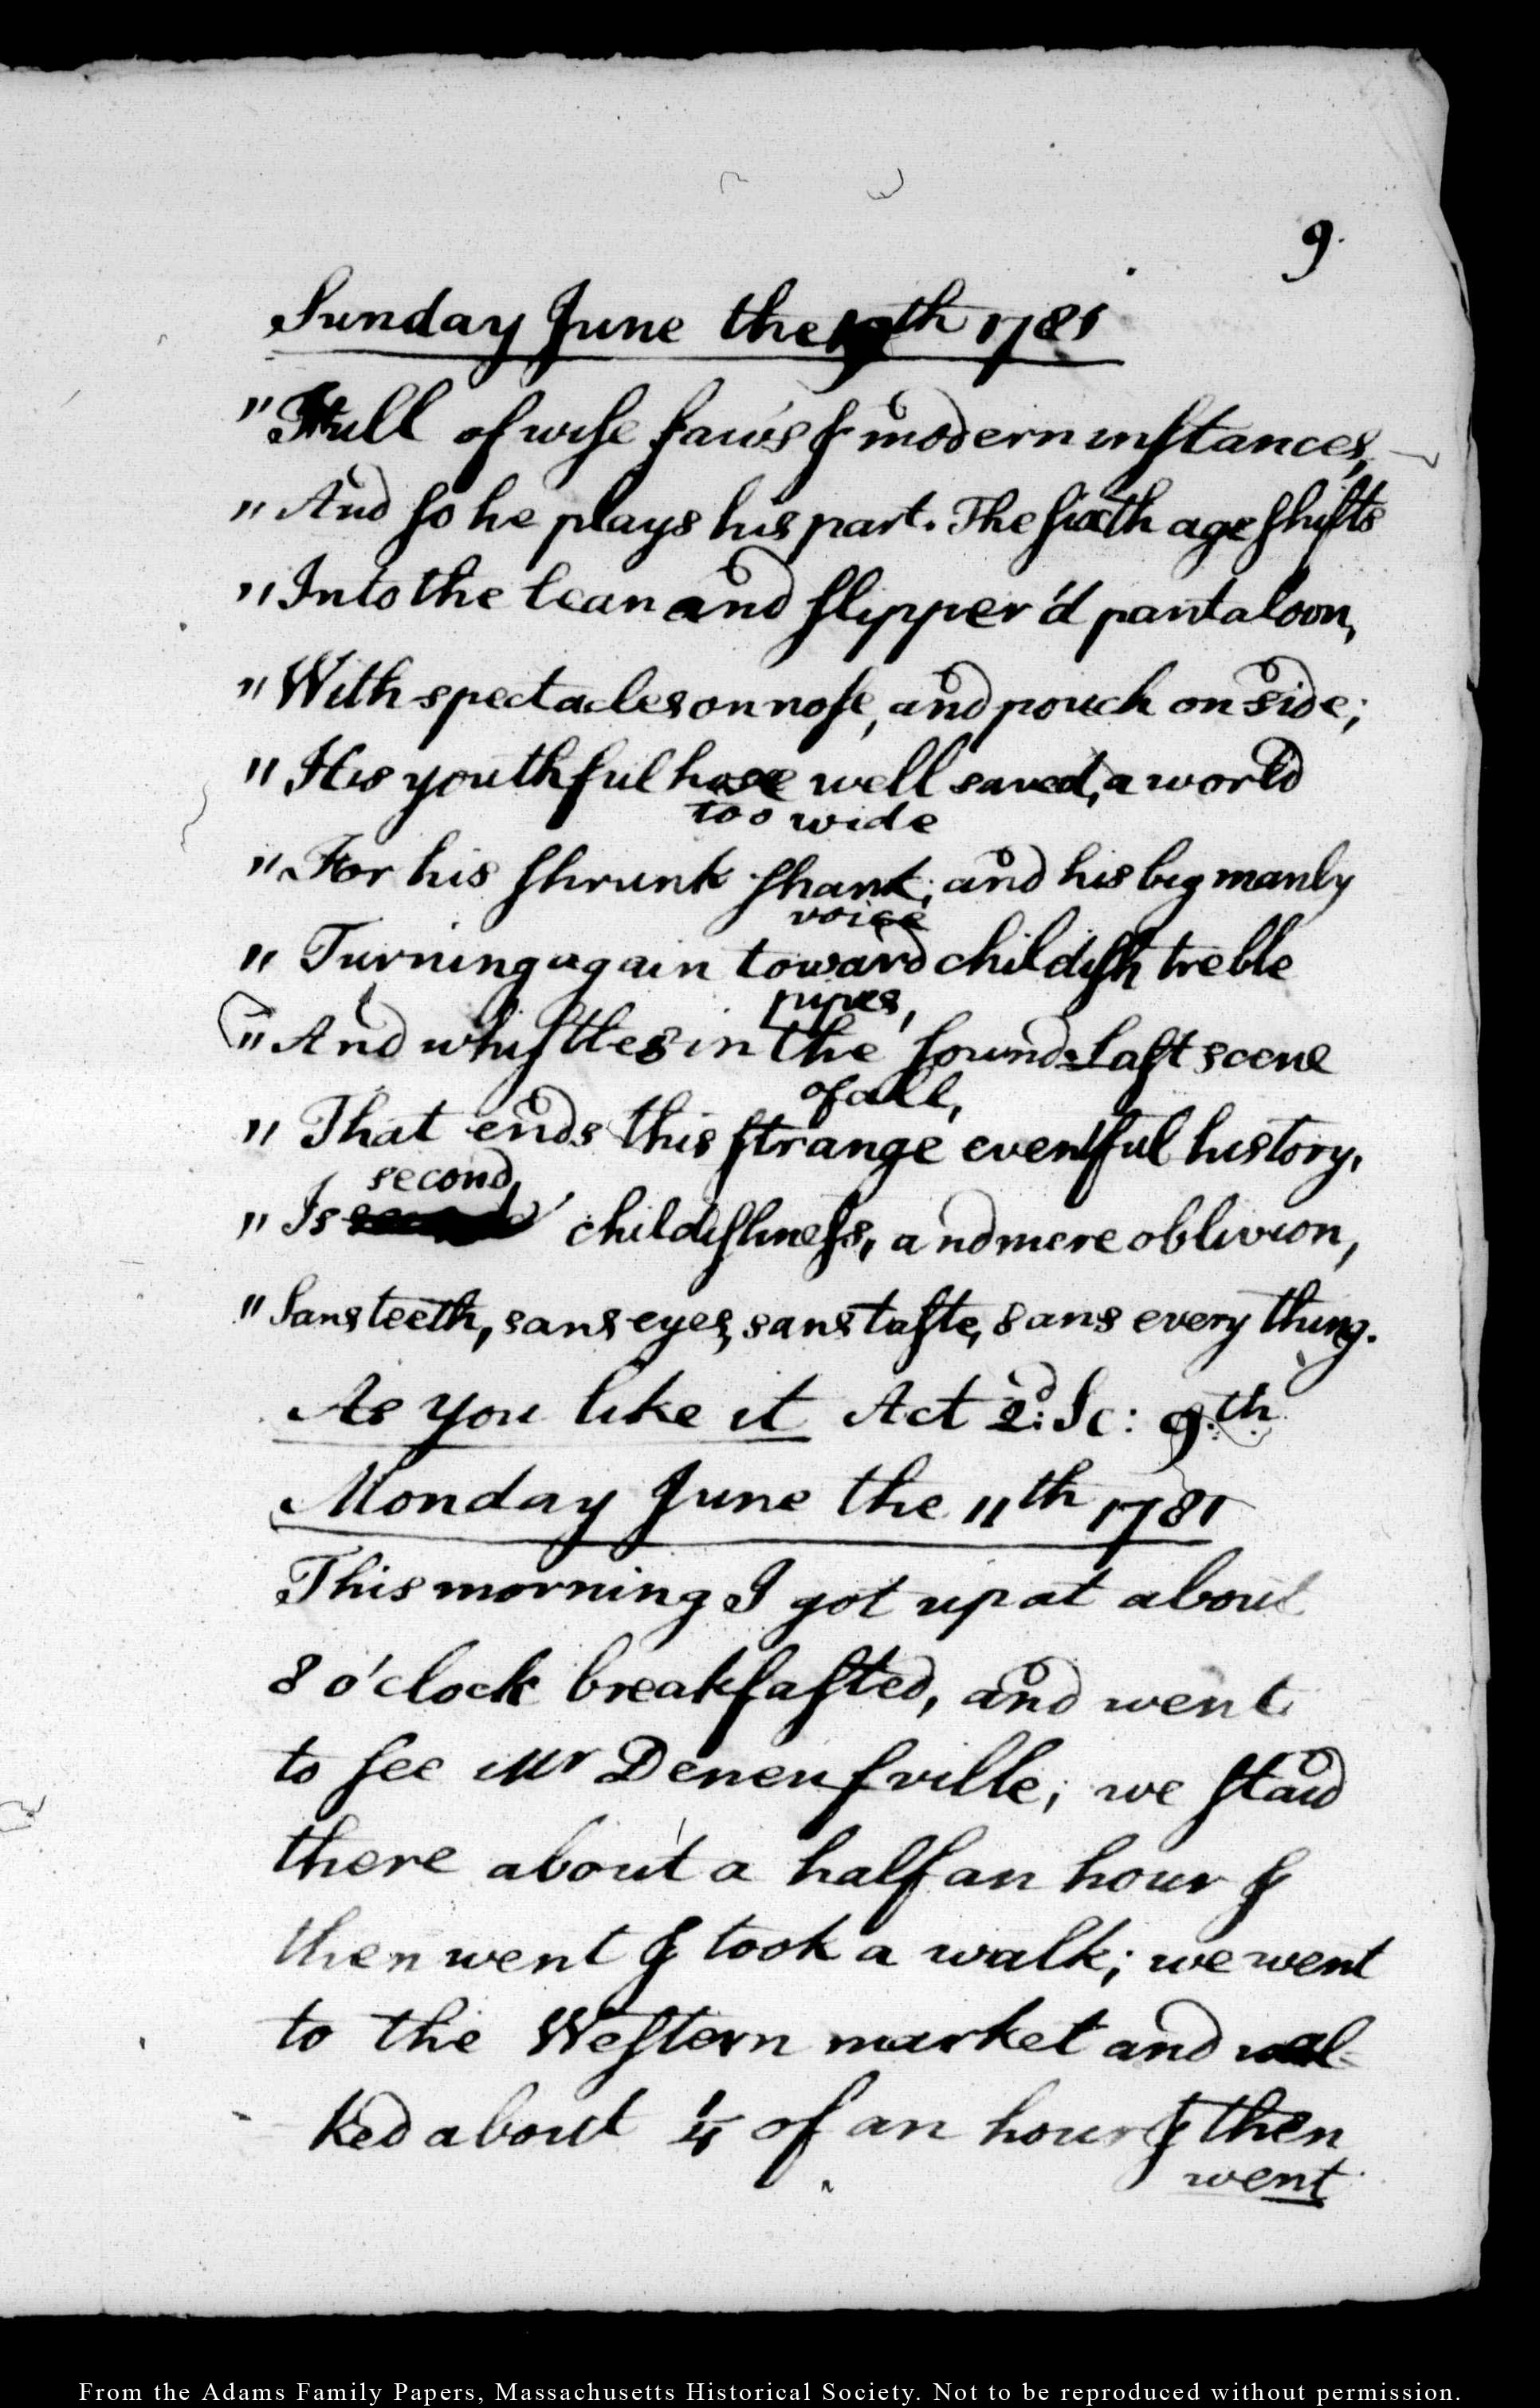 9.
Sunday June the 10th 1781
"Full of wise saws & modern instances,
"And so he plays his part. The sixth age shifts
"Into the lean and slipper'd pantaloon,
"With spectacles on nose, and pouch on side;
"His youthful hose well saved, a world
too wide
"For his shrunk shank; and his big manly
voice
"Turning again toward childish treble
pipes,
"And whistles in the sound. Last scene
of all,
"That ends this strange eventful history,
second,
"Is childishness, and mere oblivion,
"Sans teeth, sans eyes, sans taste, sans every thing.
As you like it Act 2d: Sc: 9.th
Monday June the 11th 1781
This morning I got up at about
8 o'clock breakfasted, and went
to see Mr Deneufville; we staid
there about a half an hour &
then went & took a walk; we went
to the Western market and wal-
ked about 1/4 of an hour & then
went
From the Adams Family Papers, Massachusetts Historical Society. Not to be reproduced without permission.